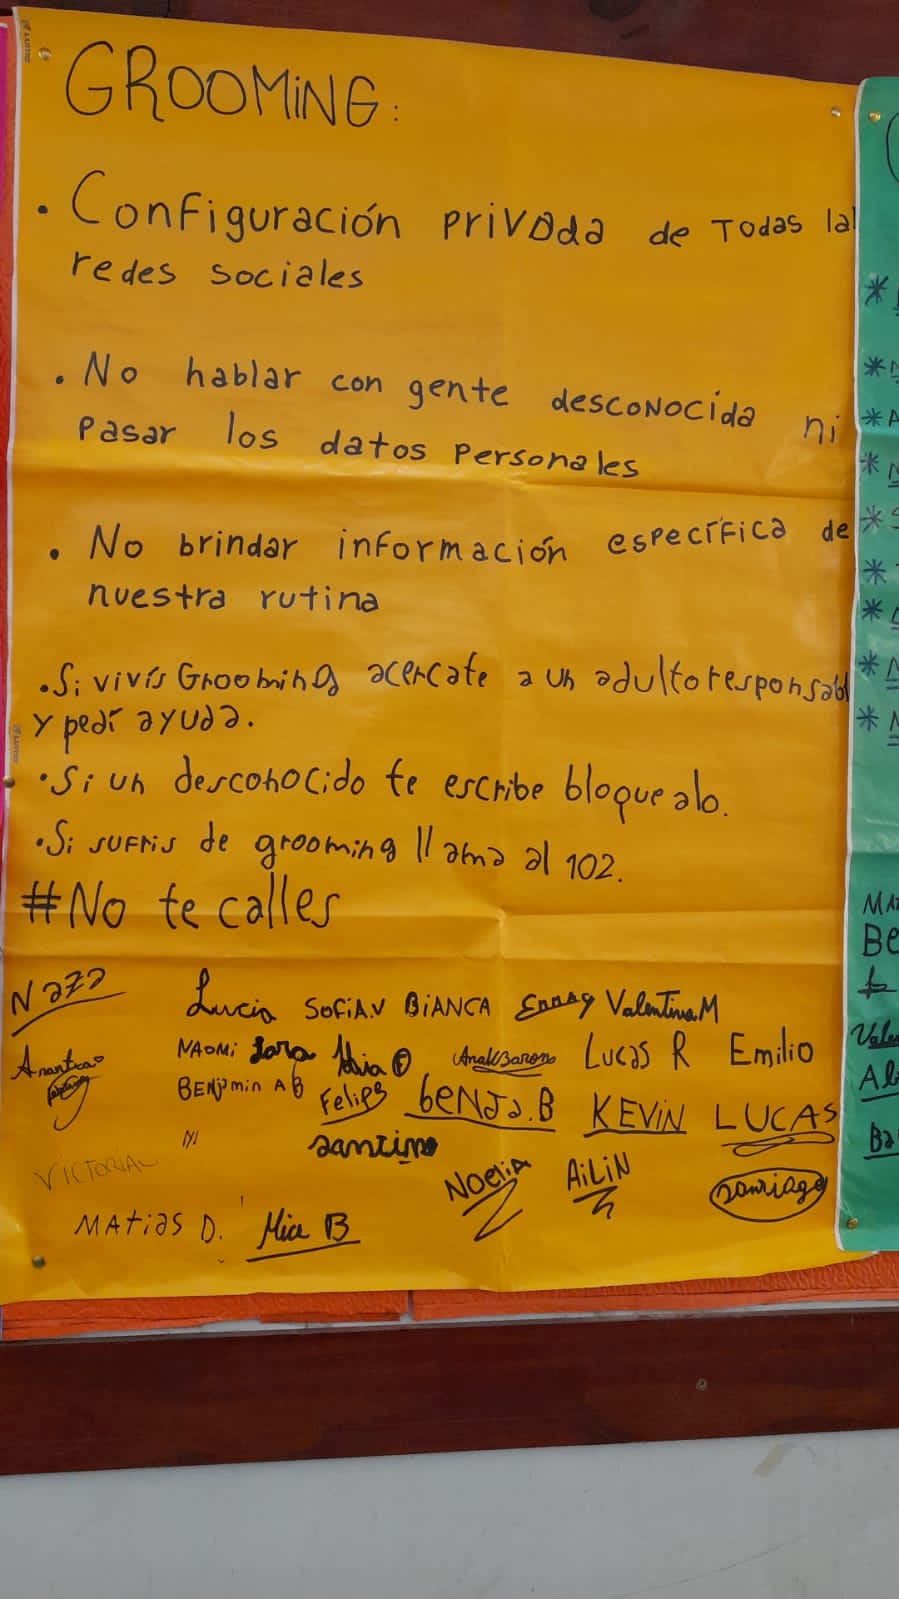 GROOMING:
• Configuración privada de Todas la
redes sociales
• No hablar con gente desconocida ni
pasar los datos personales
• No brindar información específica de
nuestra rutina
• Si vivís Grooming acercate a un adulto responsabl
y pedí ayuda.
• Si un desconocido te escribe bloquealo.
• Si sufris de grooming llama al 102.
#No te calles
Naza
Lucia SOFIA.V BIANCA Valentina.M
NAOMI LUCAS R Emilio
BENJMIN AB Felipe beNJa.B KEVIN LUCAS
santino
VICTORIA NOELIA AiLiN Santiago
MATIAS D. Mia B
*
*
* A
*
* S
*
*
*
*
MA
Be
Vale
Al
Ba